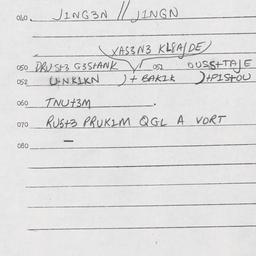 040 JING3N // JINGN
XAS3N3 KL8AJDE
050 DRUS+3 G3S+ANK 051 OUSS+TAJE
052 U-NK1KN ) + BAK1K ) +PIS+OU
060 TNU+3M .
070 RUS+3 PRUK1M QGL A VORT
080 -